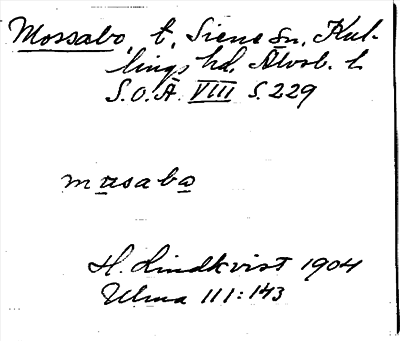 Mossabo, t. Siene sn, Kul-
lings hd, Älvsb. l.
S.O.Ä. VIII S. 229
musabo
H. Lindkvist 1904
Ulma 111:143